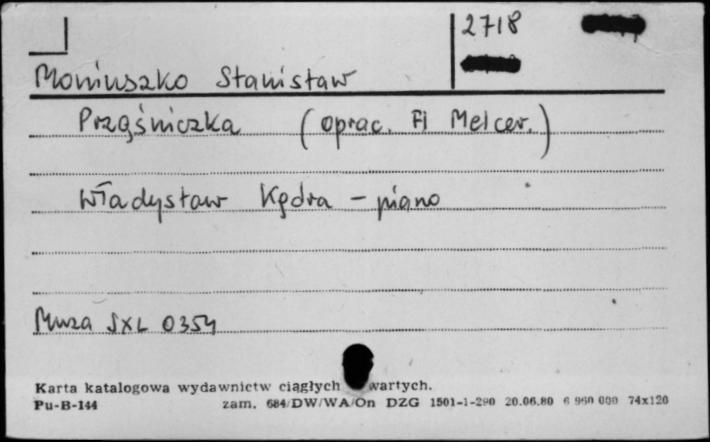 2718
Moniuszko Stanisław
Prząśniczka (oprac. Fl Melcer.)
Władysław Kędra - piano
Muza SXL 0354
Karta katalogowa wydawnictw ciągłych wartych.
Pu-B-144 zam. 684/DW/WA/On DZG 1501-1-290 20.06.80 6 960 000 74x120